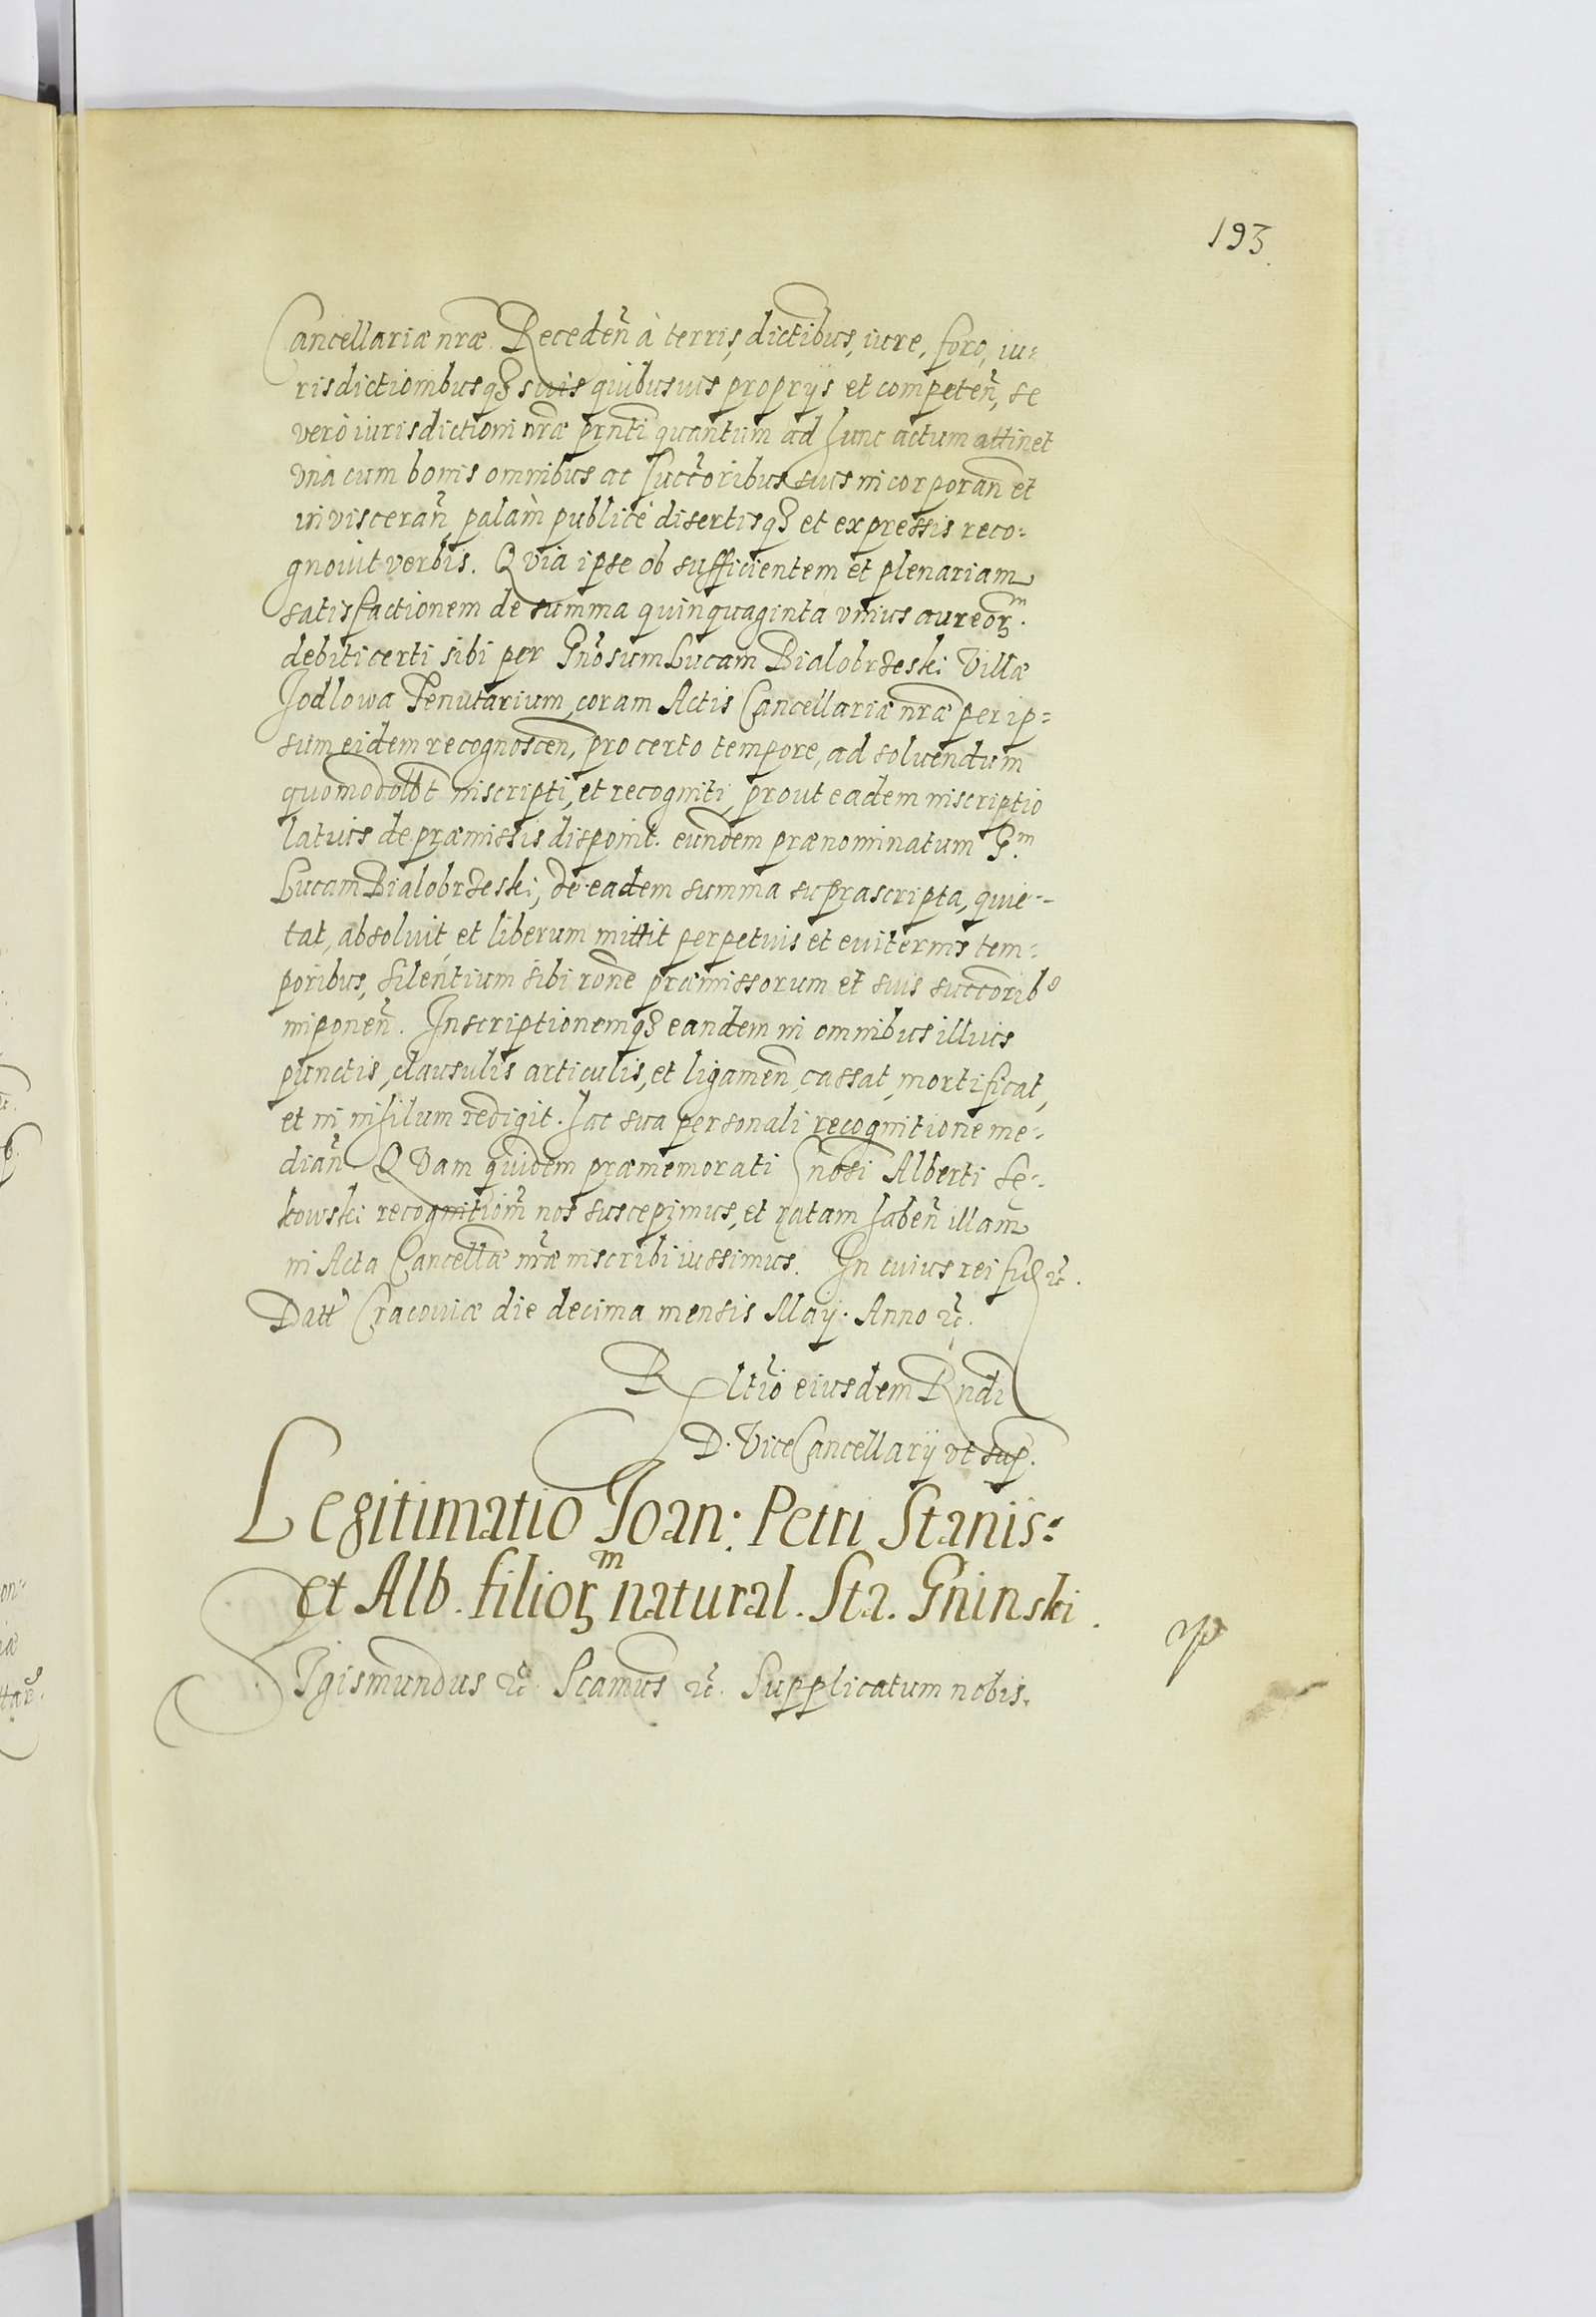 193.
Cancellariæ nræ. Receden̄ à terris, dictibus, iure, foro, iu=
risdictionibusqȝ suis quibusuis proprijs et competen̄, se
verò iurisdictioni nræ prnti quantum ad hunc actum attinet
vnà cum bonis omnibus ac succ̄toribus suis incorporan̄ et
inuisceran̄, palàm publicè disertisqȝ et expressis reco=
gnouit verbis. Quia ipse ob sufficientem et plenariam
satisfactionem de summa quinquaginta vnius aureorᵐ.
debiti certi sibi per Gn̄osum Lucam Bialobrzeski Villæ
Jodlowa Tenutarium, coram Actis Cancellariæ nræ per ip=
sum eidem recognoscen̄, pro certo tempore, ad soluendum
quomodolbt inscripti, et recogniti, prout eadem inscriptio
latius de præmissis disponit. eundem prænominatum G.ᵐ
Lucam Bialobrzeski, de eadem summa suprascripta, quie=
tat, absoluit et liberum mittit perpetuis et euiternis tem=
poribus, silentium sibi rone præmissorum et suis succorib⁹
imponen̄. Inscriptionemqȝ eandem in omnibus illius
punctis, clausulis articulis, et ligamen̄, cassat, mortificat,
et in nihilum redigit. hac sua personali recognitione me=
dian̄ Quam quidem præmemorati Gnosi Alberti Sę=
kowski recognitiom̄ nos suscepimus, et ratam haben̄ illam
in Acta Cancellæ nræ inscribi iussimus. In cuius rei fid ꝛc̄.
Datt Cracouiæ die decima mensis Maij. Anno ꝛc̄.
Rltio eiusdem Rndi
D. ViceCancellarij vt sup.
Legitimatio Joan: Petri Stanis:
et Alb. filiorᵐ natural. Sta. Gninski.
Sigismundus ꝛc̄. Scamus ꝛc̄. Supplicatum nobis.